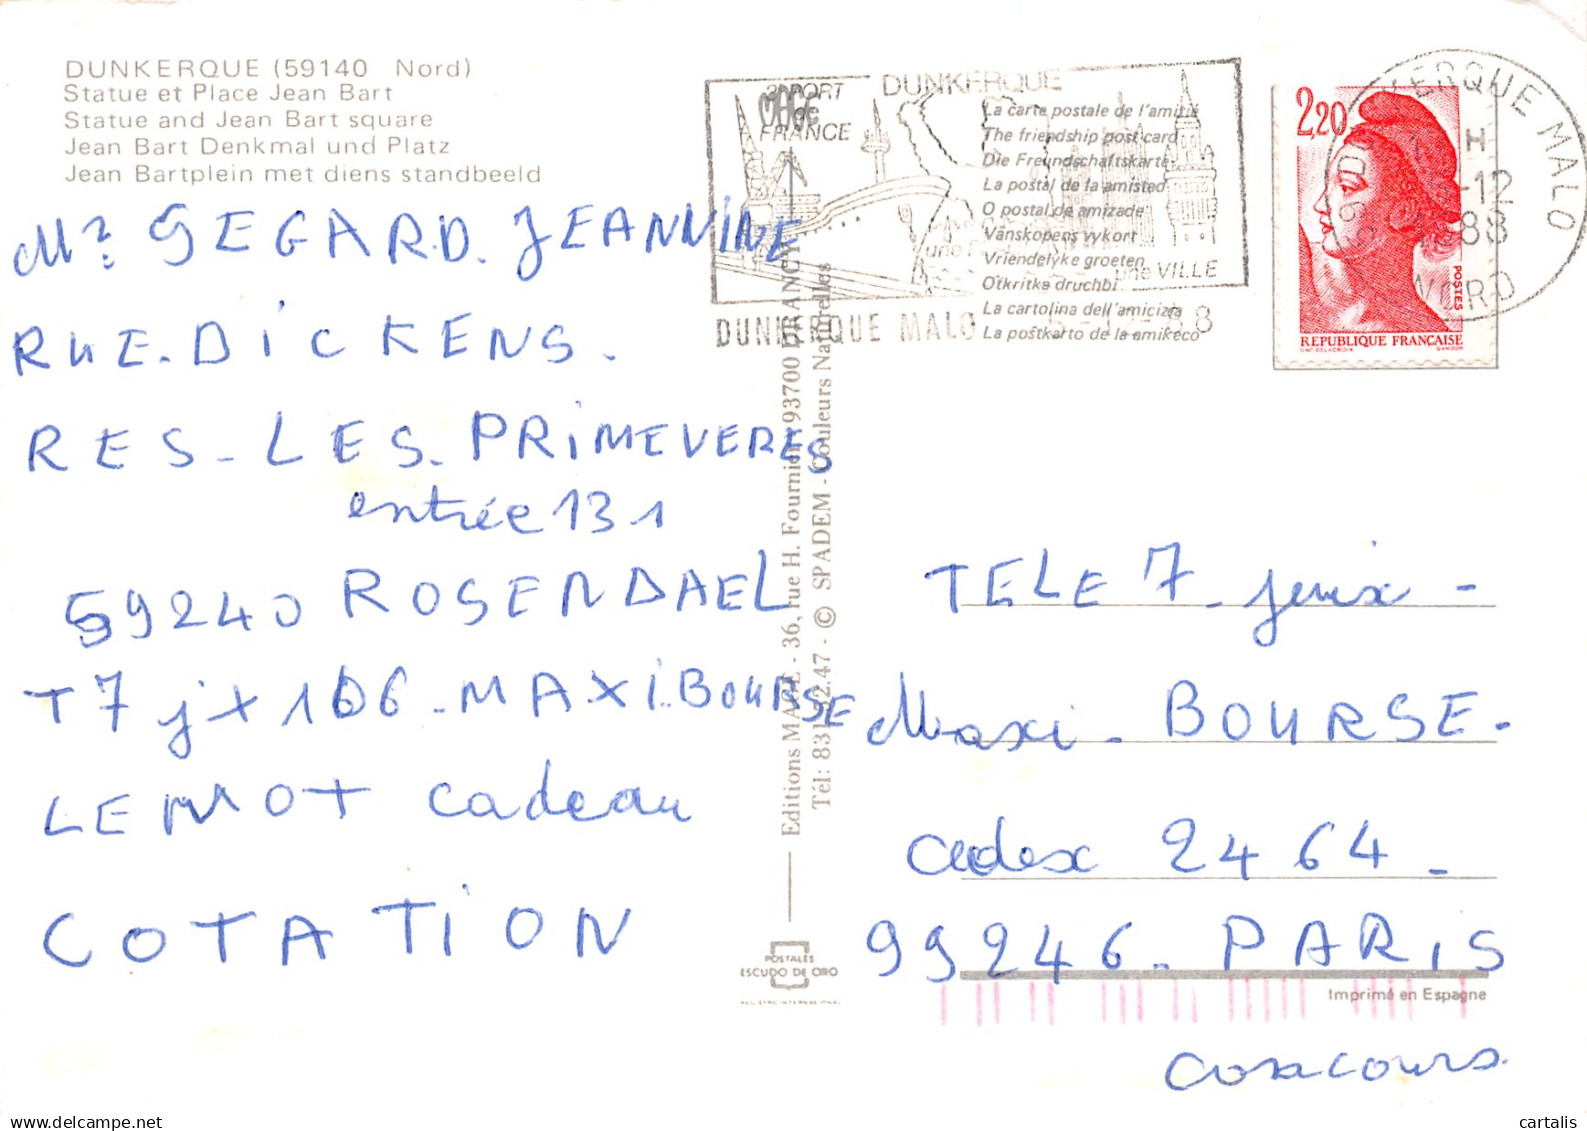 DUNKERQUE (59140 Nord)
Statue et Place Jean Bart
Statue and Jean Bart square
Jean Bart Denkmal und Platz
Jean Bartplein met diens standbeeld
DUNKERQUE
3e PORT
de
FRANCE
MAGE
une VILLE
DUNKERQUE MALO
La carte postale de l'amitié
The friendship post card
Die Freundschaftskarte
La postal de la amistad
O postal de amizade
Vänskopens vykort
Vriendelyke groeten
Otkritka druchbi
La cartolina dell'amicizia
La poŝtkarto de la amikeco
2,20
POSTES
REPUBLIQUE FRANÇAISE
DUNKERQUE MALO
H
-12
1988
NORD
Mr GEGARD. JEANNINE
RUE. DiCKENS.
RES - LES. PRiMEVERES
entrée 131
59240 ROSENDAEL
T7 jx 166 - MAXi. BOURSE
LE MOT cadeau
COTATiON
Editions MAGE - 36, rue H. Fournier 93700 DRANCY
© SPADEM - Couleurs Naturelles
POSTALES
ESCUDO DE ORO
REGISTRO INTERNACIONAL
TELE 7 - jeux -
Maxi - BOURSE -
cedex 2464 -
99246 - PARIS
Imprimé en Espagne
concours.
cartalis